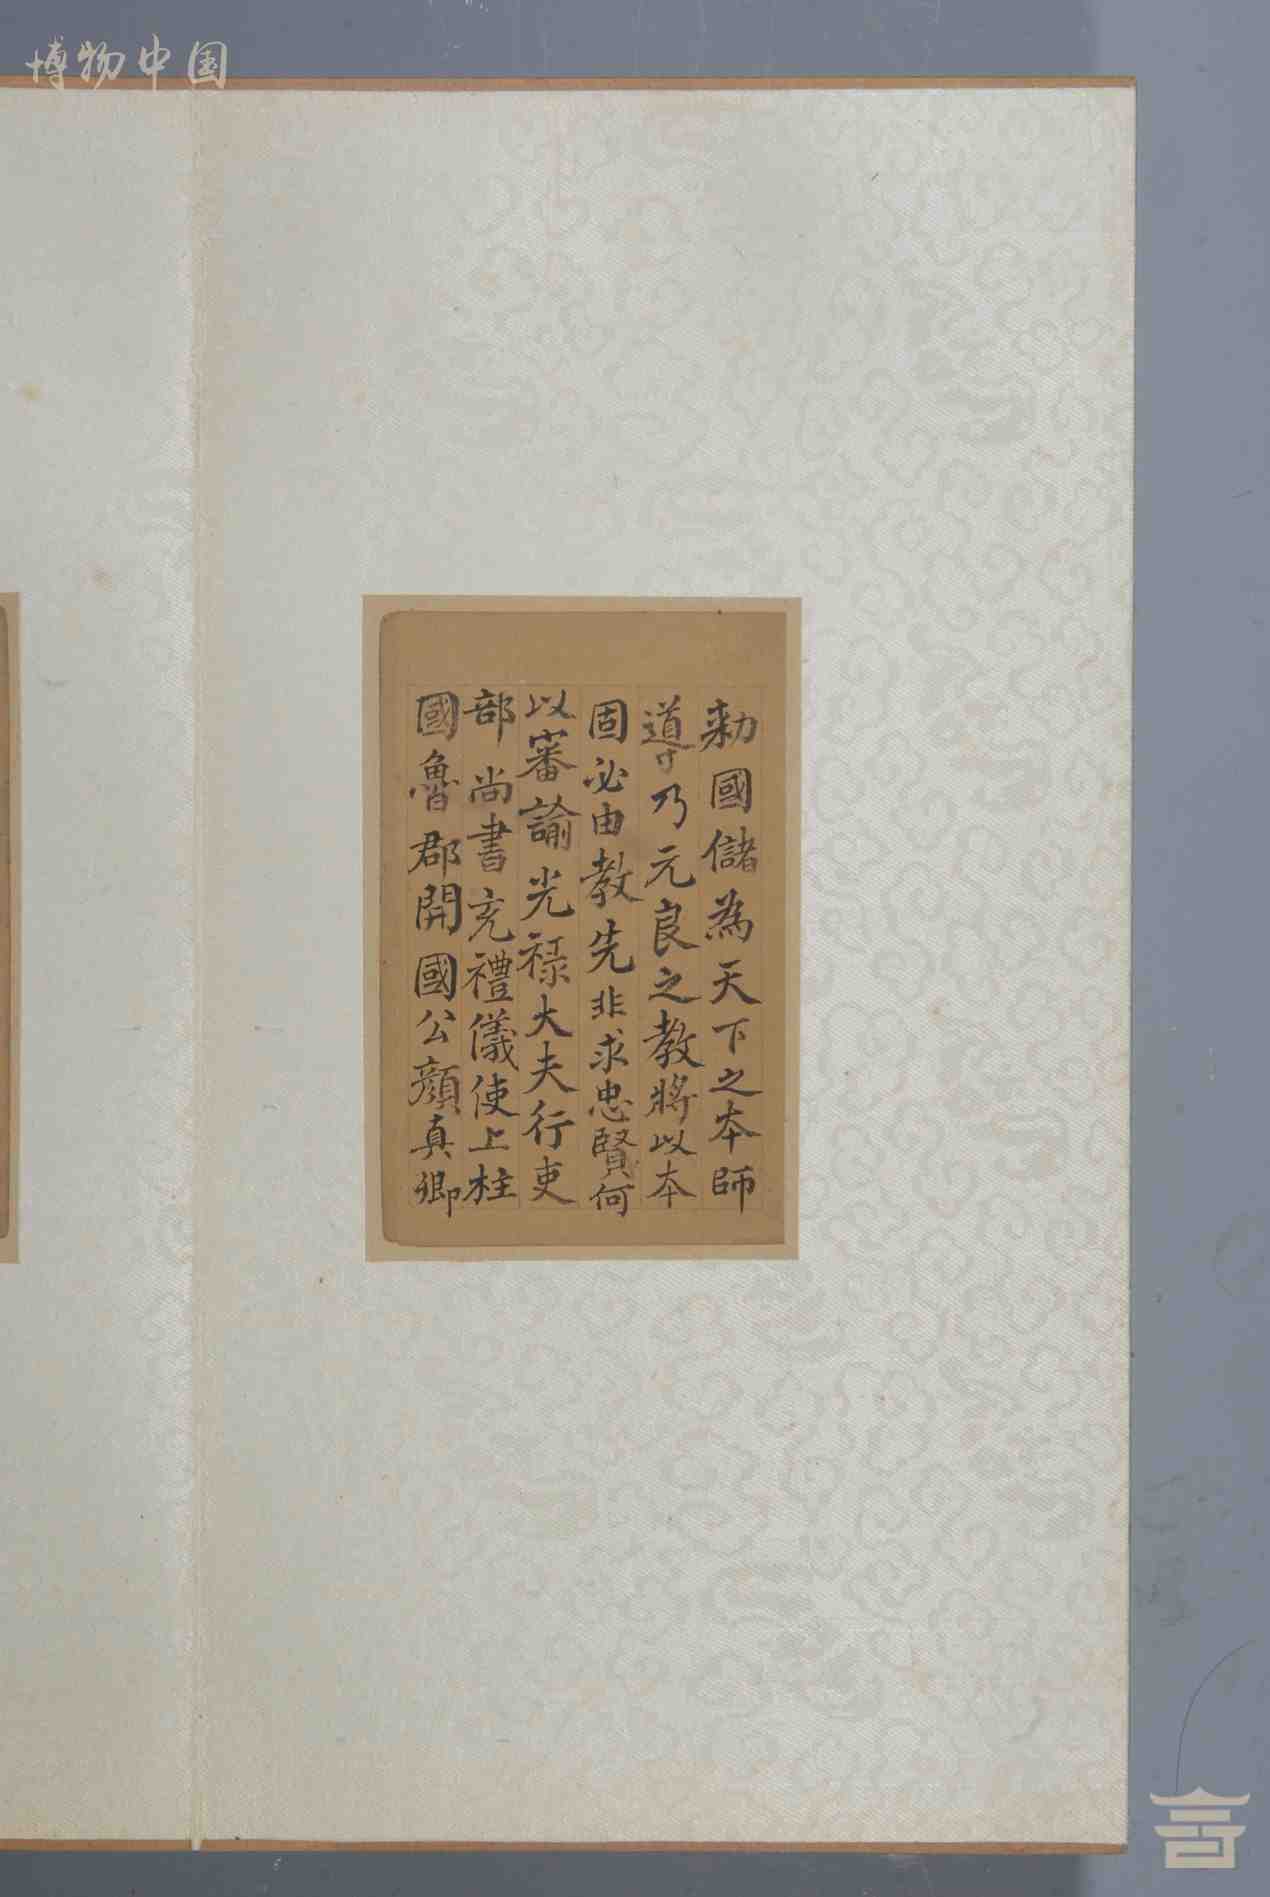 博物中国
勑國儲為天下之本師
導乃元良之教將以本
固必由教先非求忠賢何
以審諭光祿大夫行吏
部尚書充禮儀使上柱
國魯郡開國公顏真卿